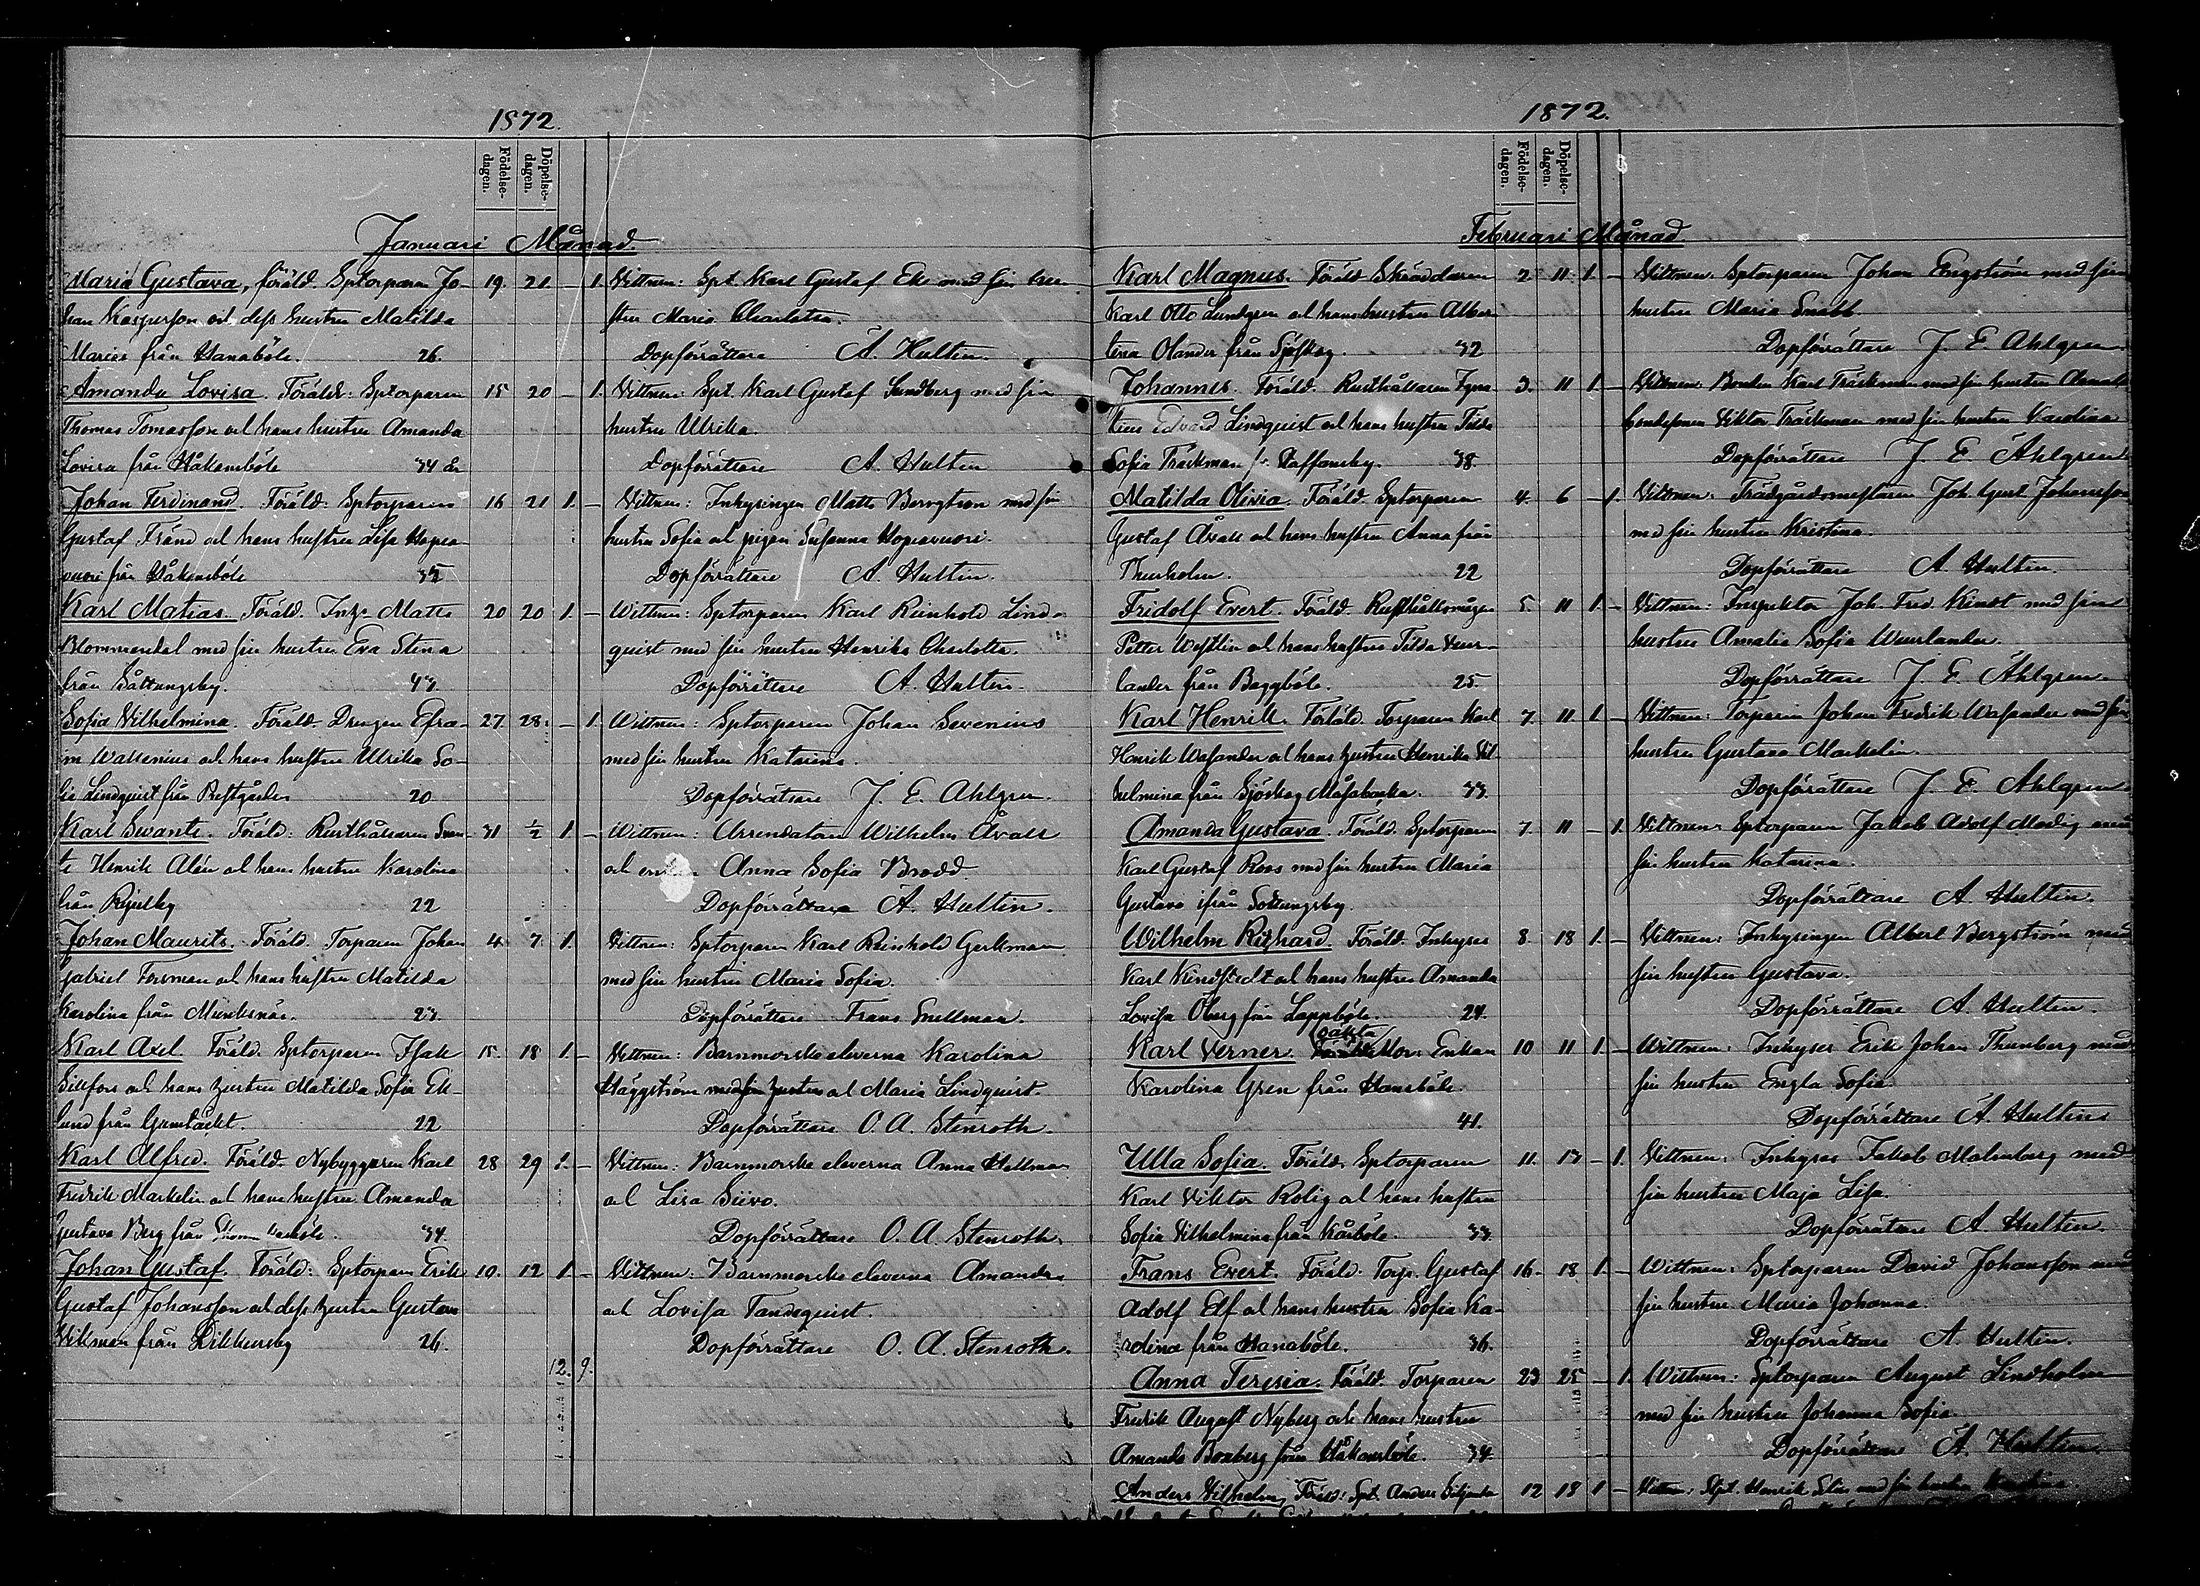 1872.
Födelse-dagen.
Döpelse-dagen.
Januari Månad.
Maria Gustava, föräld. Sptorparen Jo- 19. 21 — 1. Vittnen: Spt. Karl Gustaf Ek med sin hu-
han Kasperson och dess hustru Matilda stru Maria Charlotta.
Maria från Hanaböle. 26. Dopförrättare A. Hultin.
Amanda Lovisa. Föräld: Sptorparen 15 20 — 1. Vittnen: Spt. Karl Gustaf Sundberg med sin
Thomas Tomasson och hans hustru Amanda hustru Ulrika.
Lovisa från Håkansböle 34 år Dopförrättare A. Hultin
Johan Ferdinand. Föräld: Sptorparen 16 21 1. — Vittnen: Inhysingen Matts med sin
Gustaf Fränd och hans hustru Lisa Hopia- hustru Sofia och pigan Susanna Hopiavuori.
vuori från Håkansböle 35 Dopförrättare A. Hultin.
Karl Matias. Föräld. Inh. Matts 20 20 1. — Wittnen: Sptorparen Karl Reinhold Lind-
Blommendal med sin hustru Eva Stina quist med sin hustru Henrika Charlotta.
från Sottungsby. 43. Dopförrättare A. Hultin.
Sofia Vilhelmina. Föräld. Drengen Efra- 27. 28. — 1. Wittnen: Sptorparen Johan Sevenius
im Wallenius och hans hustru Ulrika So- med sin hustru Katarina.
fia Lindquist från Prestgården 20 Dopförrättare J. E. Ahlgren.
Karl Swante. Föräld: Rusthållaren Svan- 31 ½ 1. — Wittnen: Arrendatorn Wilhelm Åvall
te Henrik Alén och hans hustru Karolina och Anna Sofia Brodd
från 22 Dopförrättare A. Hultin.
Johan Maurits. Föräld. Torparen Johan 4. 7. 1. Vittnen: Sptorparen Karl Reinhold Gerkman
Gabriel Forsman och hans hustru Matilda med sin hustru Maria Sofia.
Karolina från Munksnäs. 23. Dopförrättare Frans Snellman.
Karl Axel. Föräld. Sptorparen Isak 15. 18 1. — Vittnen: Barnmorske eleverna Karolina
Sillfors och hans hustru Matilda Sofia Ek- Häggström och Maria Lindquist.
lund från Gumtäckt. 22 Dopförrättare O. A. Stenroth.
Karl Alfred. Föräld. Nybyggaren Karl 28 29 1. — Vittnen: Barnmorske eleverna Anna Hellman
Fredrik Markelin och hans hustru Amanda och Lisa Siivo.
Gustava Berg från 34. Dopförrättare O. A. Stenroth.
Johan Gustaf. Föräld: Sptorparen Erik 10. 12 1. — Vittnen: Barnmorske eleverna Amanda
Gustaf Johansson och dess hustru Gustava och Lovisa Tandequist.
Wikman från Dikkursby 26. Dopförrättare O. A. Stenroth.
12. 9.
1872.
Födelse-dagen.
Döpelse-dagen.
Februari Månad.
Karl Magnus. Föräld. Skräddaren 2. 11. 1. — Vittnen: Sptorparen Johan Engström med sin
Karl Otto Lundgren och hans hustru Alber- hustru Maria Snabb.
tina Olander från Sjöskog. 32 Dopförrättare J. E. Ahlgren.
Johannes. Föräld. Rusthållaren Igna- 3. 11 1. — Vittnen: Bonden Karl Träskman med sin hustru
tius Edvard Lindquist och hans hustru Tilda bondesonen Viktor Träskman med sin hustru Karolina
Sofia Träskman fr. Staffansby. 38. Dopförrättare J. E. Ahlgren
Matilda Olivia. Föräld. Sptorparen 4. 6 — 1. Vittnen: Trädgårdsmästaren Joh. Gust. Johansson
Gustaf Åvall och hans hustru Anna från med sin hustru Kristina.
Thurholm. 22 Dopförrättare A. Hultin.
Fridolf Evert. Föräld. Rusthållsmågen 5. 11 1. — Vittnen: Inspektor Joh. Fred. med sin
Petter Westlin och hans hustru Tilda Wuor- hustru Amalia Sofia Wuorlander.
lander från Baggböle. 25. Dopförrättare J. E. Ahlgren.
Karl Henrik. Föräld. Torparen Karl 7. 11 1. — Vittnen: Torparen Johan Fredrik Wasander med sin
Henrik Wasander och hans hustru Henrika Vil- hustru Gustava Markelin.
helmina från Sjöskog Måsabacka. 33. Dopförrättare J. E. Ahlgren
Amanda Gustava. Föräld. Sptorparen 7. 11 — 1. Vittnen: Sptorparen Jakob Adolf Modig med
Karl Gustaf Roos med sin hustru Maria sin hustru Katarina.
Gustava ifrån Sottungsby. Dopförrättare A. Hultin.
Wilhelm Richard. Föräld. Inhyses 8. 18 1. — Vittnen: Inhysingen Albert Bergström med
Karl Kindstedt och hans hustru Amanda sin hustru Gustava.
Lovisa Öberg från Lappböle. 24. Dopförrättare A. Hultin.
Karl Verner. (oäkta) Mor: Enkan 10 11 1. — Wittnen: Inhyses Erik Johan Thunberg med
Karolina Gren från Hanaböle. sin hustru Engla Sofia.
41. Dopförrättare A. Hultin
Ulla Sofia. Föräld. Sptorparen 11. 13 — 1. Vittnen: Inhyses Jakob Malmberg med
Karl Viktor Rolig och hans hustru sin hustru Maja Lisa.
Sofia Vilhelmina från Kårböle. 33. Dopförrättare A. Hultin.
Frans Evert. Föräld. Torp. Gustaf 16. 18 1. — Wittnen: Sptorparen David Johansson med
Adolf Elf och hans hustru Sofia Ka- sin hustru Maria Johanna.
rolina från Hanaböle. 36. Dopförrättare A. Hultin.
Anna Teresia. Föräld. Torparen 23 25 — 1. Wittnen: Sptorparen August Lindholm
Fredrik August Nyberg och hans hustru med sin hustru Johanna Sofia.
Amanda Boxberg från Håkansböle. 34. Dopförrättare A. Hultin.
Anders Vilhelm. Föräld: Spt. Anders 12 18 1 — Vittnen: Spt. Henrik med sin hustru